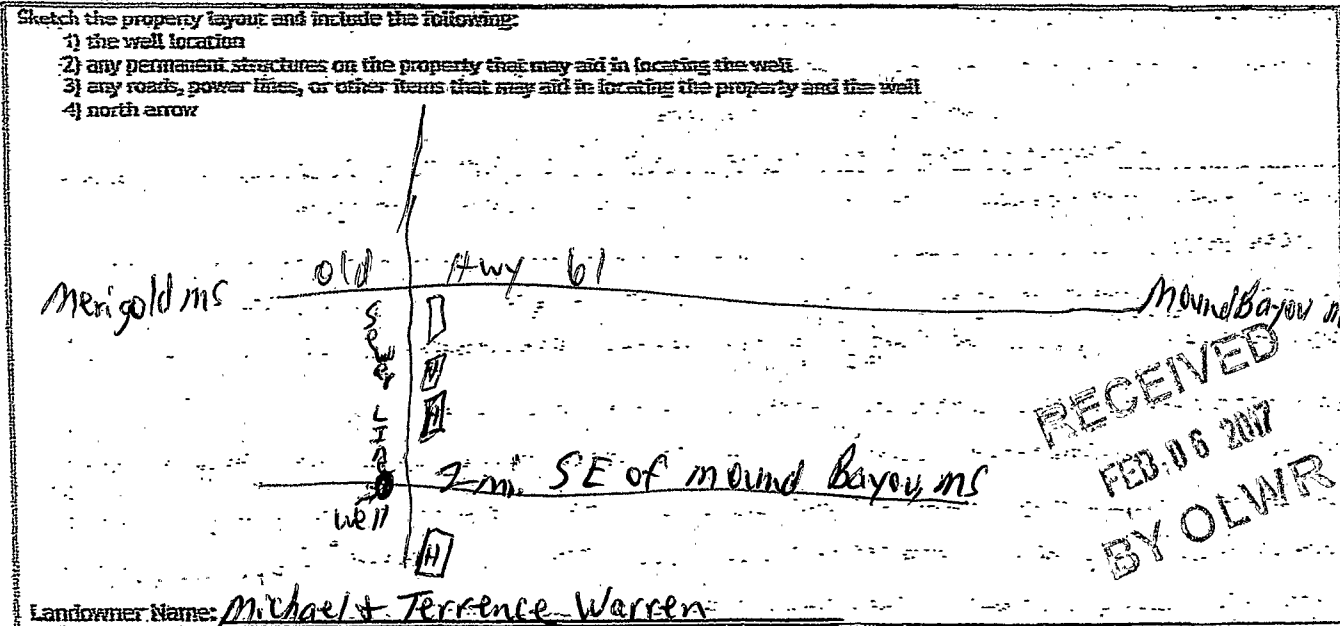 Sketch the property layout and include the following:
1) the well location
2) any permanent structures on the property that may aid in locating the well
3) any roads, power lines, or other items that may aid in locating the property and the well
4) north arrow
Merigold ms
old Hwy 61
Mound Bayou
H
H
mi. SE of mound Bayou, ms
well
H
RECEIVED
FEB 06 2017
BY OLWR
Landowner Name: Michael + Terrence Warren